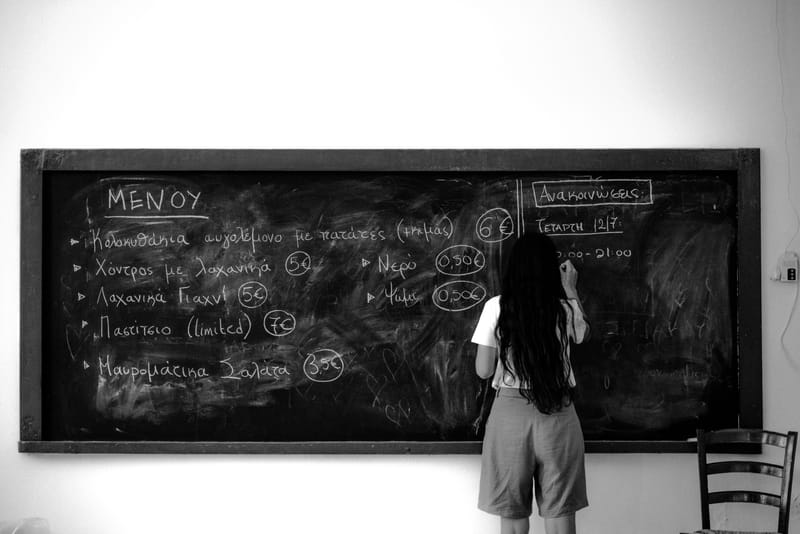 ΜΕΝΟΥ
Κολοκυθάκια αυγολέμονο με πατάτες (+κιμάς) 6€
Χόντρος με λαχανικά 5€
Λαχανικά Γιαχνί 5€
Παστίτσιο (limited) 7€
Μαυρομάτικα Σαλάτα 3,5€
Νερό 0,50€
Ψωμί 0,50€
Ανακοινώσεις:
ΤΕΤΑΡΤΗ 12/7:
- 21:00